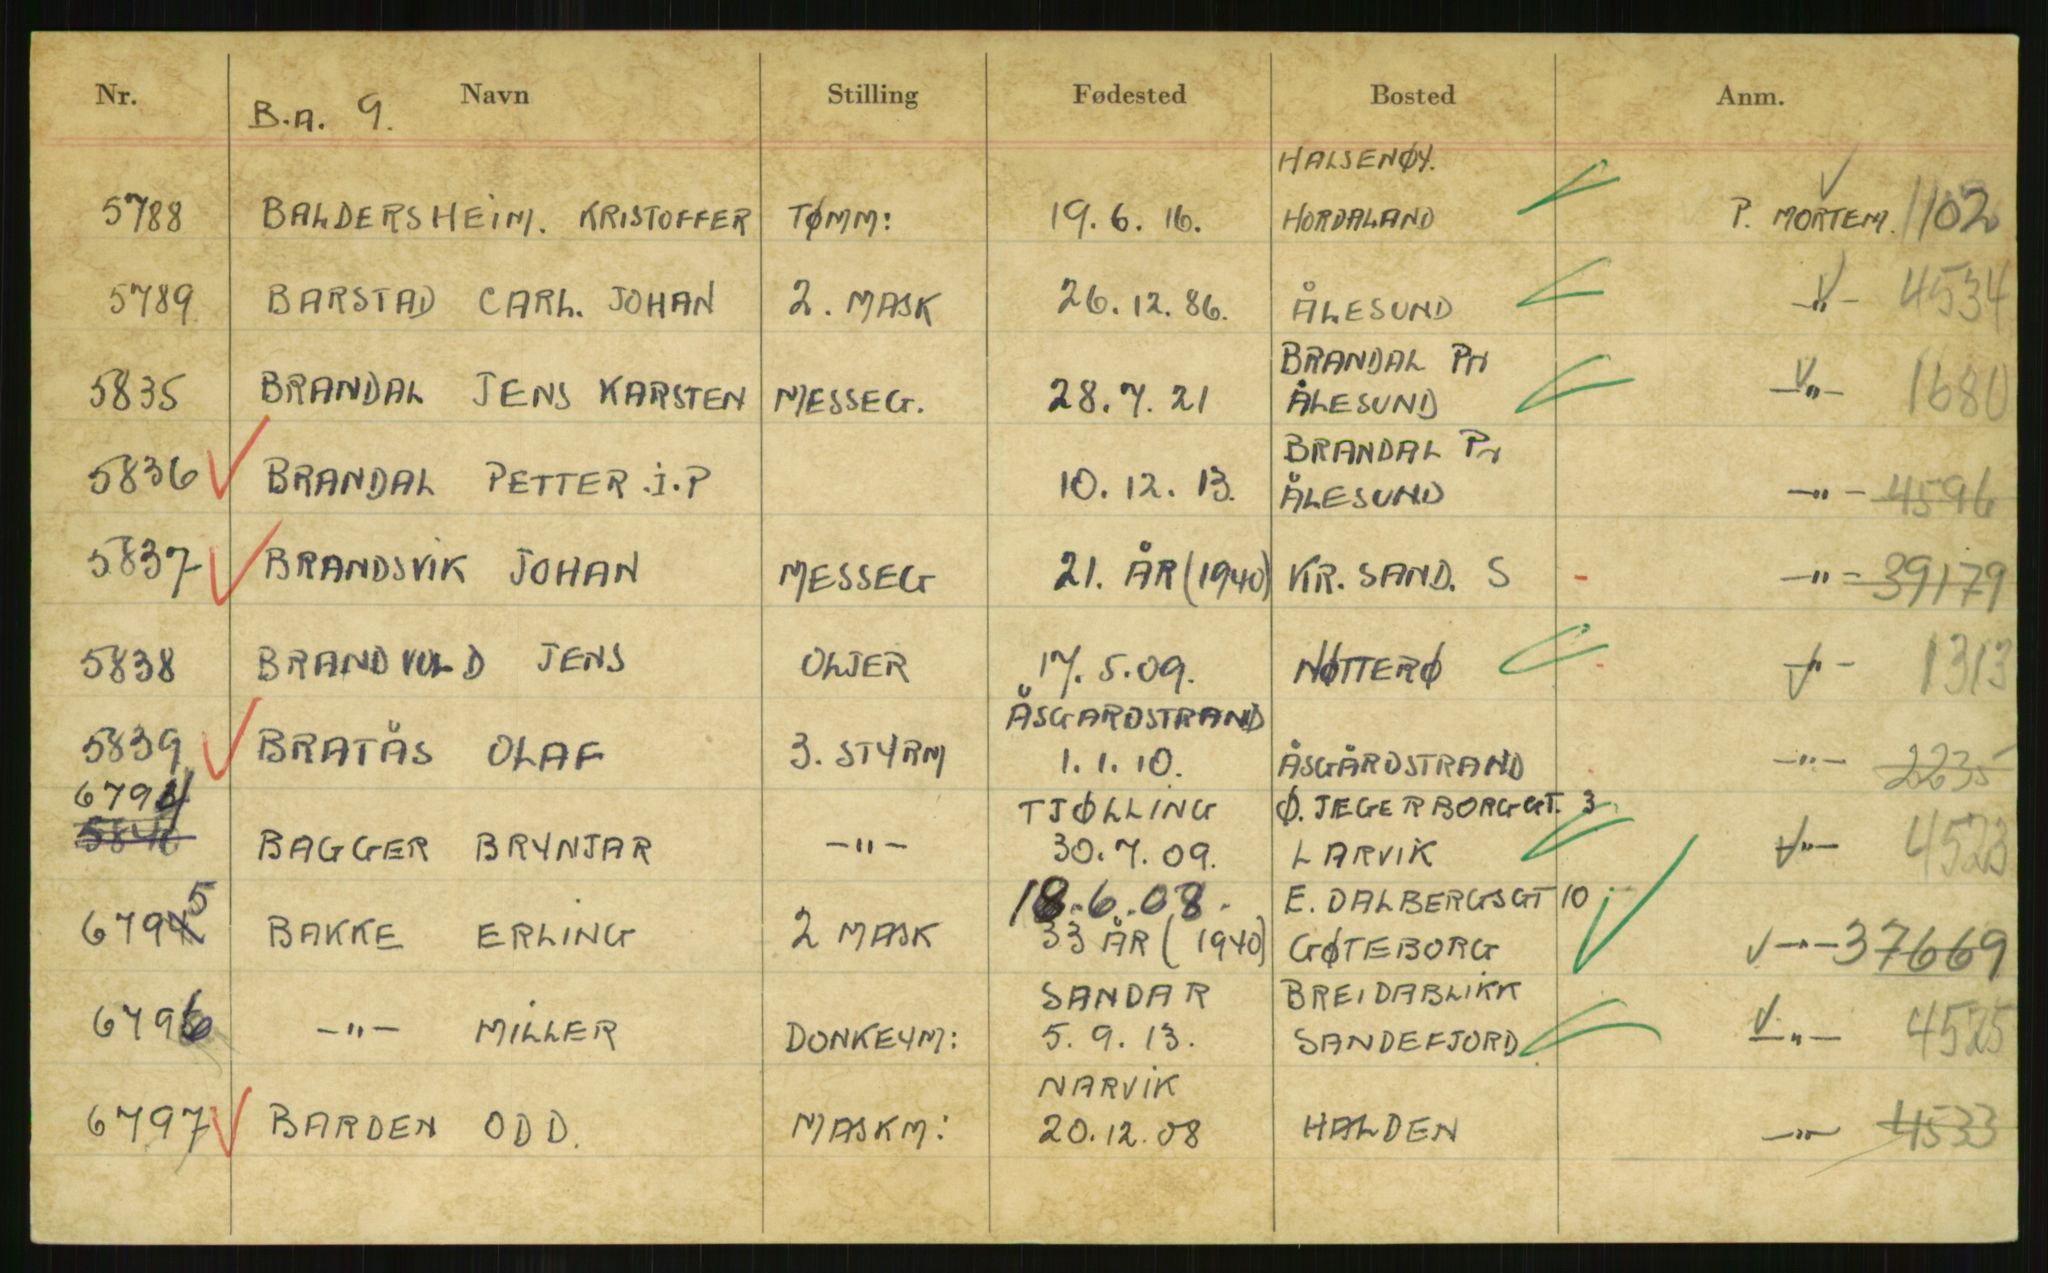 Nr. Navn Stilling Fødested Bosted Anm.
B.A. 9.
HALSENØY.
5788 BALDERSHEIM. KRISTOFFER TØMM: 19.6.16. HORDALAND P. MORTEM. 1102
5789 BARSTAD CARL. JOHAN 2. MASK 26.12.86. ÅLESUND —"— 4534
BRANDAL Pr
5835 BRANDAL JENS KARSTEN MESSEG. 28.7.21 ÅLESUND —"— 1680
BRANDAL Pr
5836 BRANDAL PETTER .J.P 10.12.13. ÅLESUND —"— 4596
5837 BRANDSVIK JOHAN MESSEG 21. ÅR (1940) KR. SAND. S —"— 39179
5838 BRANDVOLD JENS OLJER 17.5.09. NØTTERØ —"— 1313
ÅSGARDSTRAND
5839 BRATÅS OLAF 3. STYRM 1.1.10. ÅSGÅRDSTRAND —"— 2235
6794 TJØLLING Ø. JEGERBORGGT. 3
5840 BAGGER BRYNJAR —"— 30.7.09. LARVIK —"— 4523
5 18.6.08. E. DALBERGSGT 10
6794 BAKKE ERLING 2 MASK 33 ÅR (1940) GØTEBORG —"— 37669
SANDAR BREIDABLIKK
6796 —"— MILLER DONKEYM: 5.9.13. SANDEFJORD —"— 4525
NARVIK
6797 BARDEN ODD. MASKM: 20.12.08 HALDEN —"— 4533